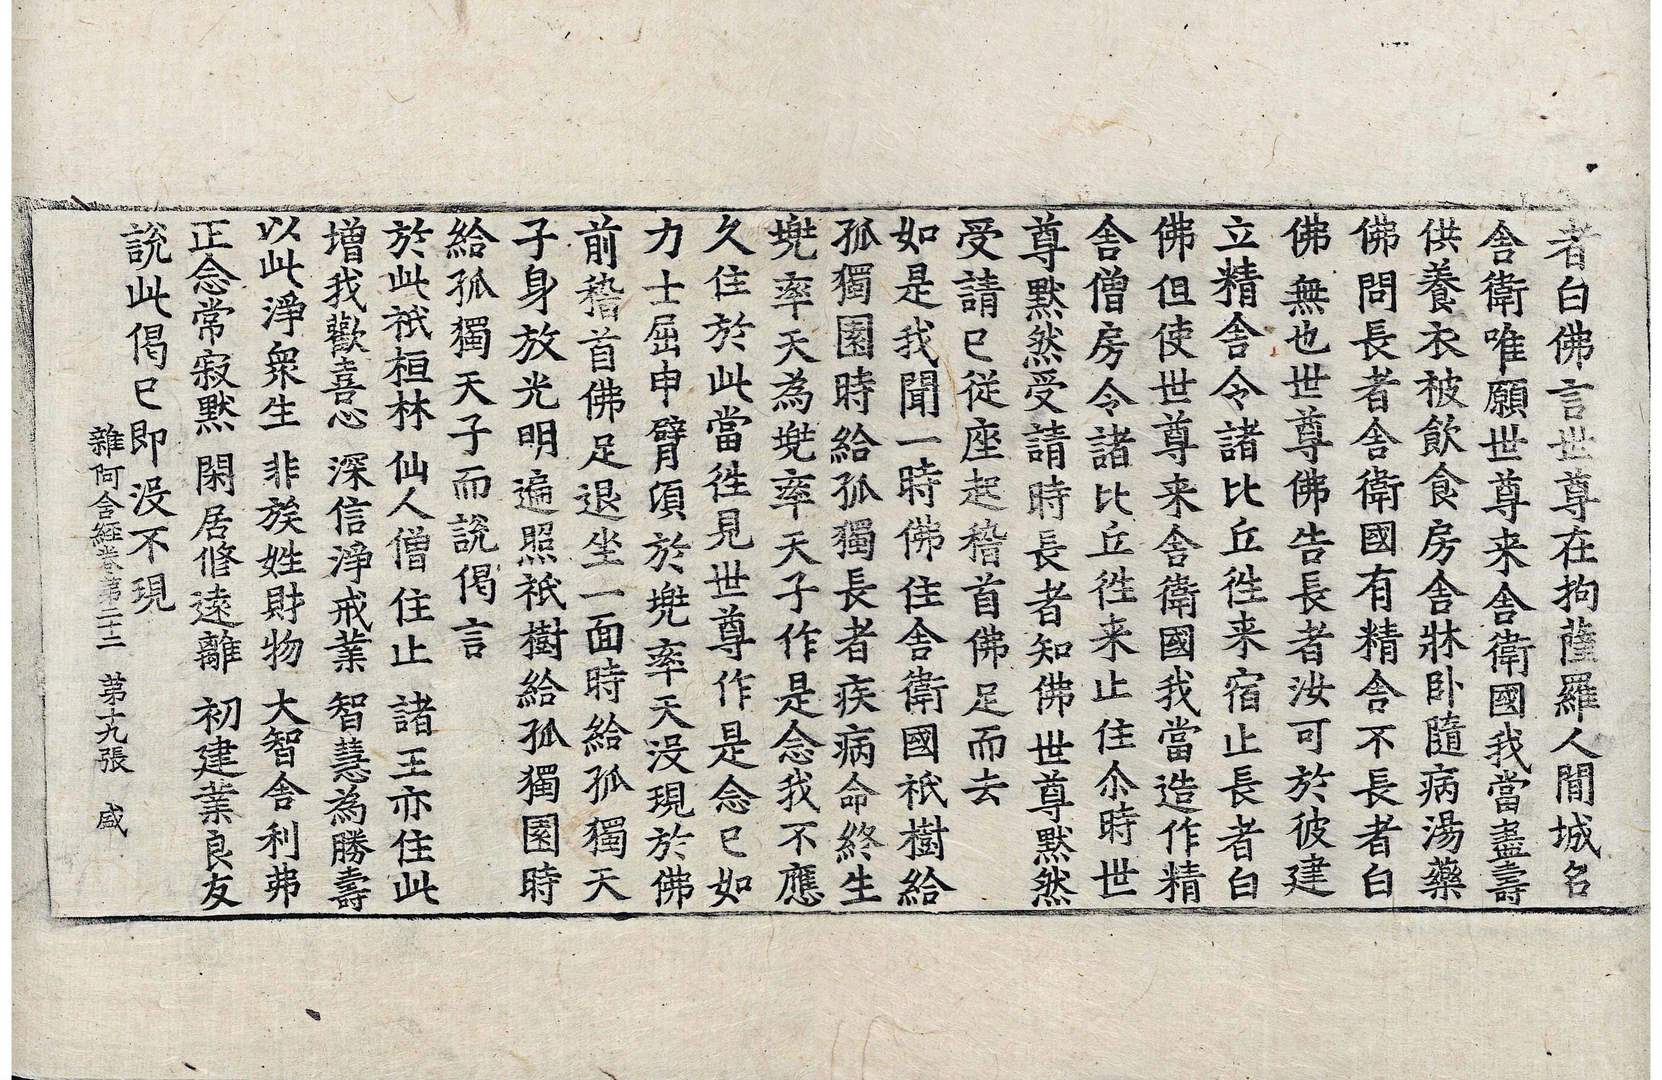 者白佛言世尊在拘薩羅人間城名
舍衛唯願世尊来舍衛國我當盡壽
供養衣被飲食房舍牀卧隨病湯藥
佛問長者舍衛國有精舍不長者白
佛無也世尊佛告長者汝可於彼建
立精舍令諸比丘徃来宿止長者白
佛但使世尊来舍衛國我當造作精
舍僧房令諸比丘徃来止住尒時世
尊默然受請時長者知佛世尊默然
受請已従座起稽首佛足而去
如是我聞一時佛住舍衛國祇樹給
孤獨園時給孤獨長者疾病命終生
兠率天為兠率天子作是念我不應
久住於此當徃見世尊作是念已如
力士屈申臂湏於兠率天没現於佛
前稽首佛足退坐一面時給孤獨天
子身放光明遍照祇樹給孤獨園時
給孤獨天子而說偈言
於此祇桓林 仙人僧住止 諸王亦住此
增我歡喜心 深信淨戒業 智慧為勝壽
以此淨衆生 非族姓財物 大智舍利弗
正念常寂默 閑居修遠離 初建業良友
說此偈已即没不現
雜阿含經卷第二十二 第十九張 盛